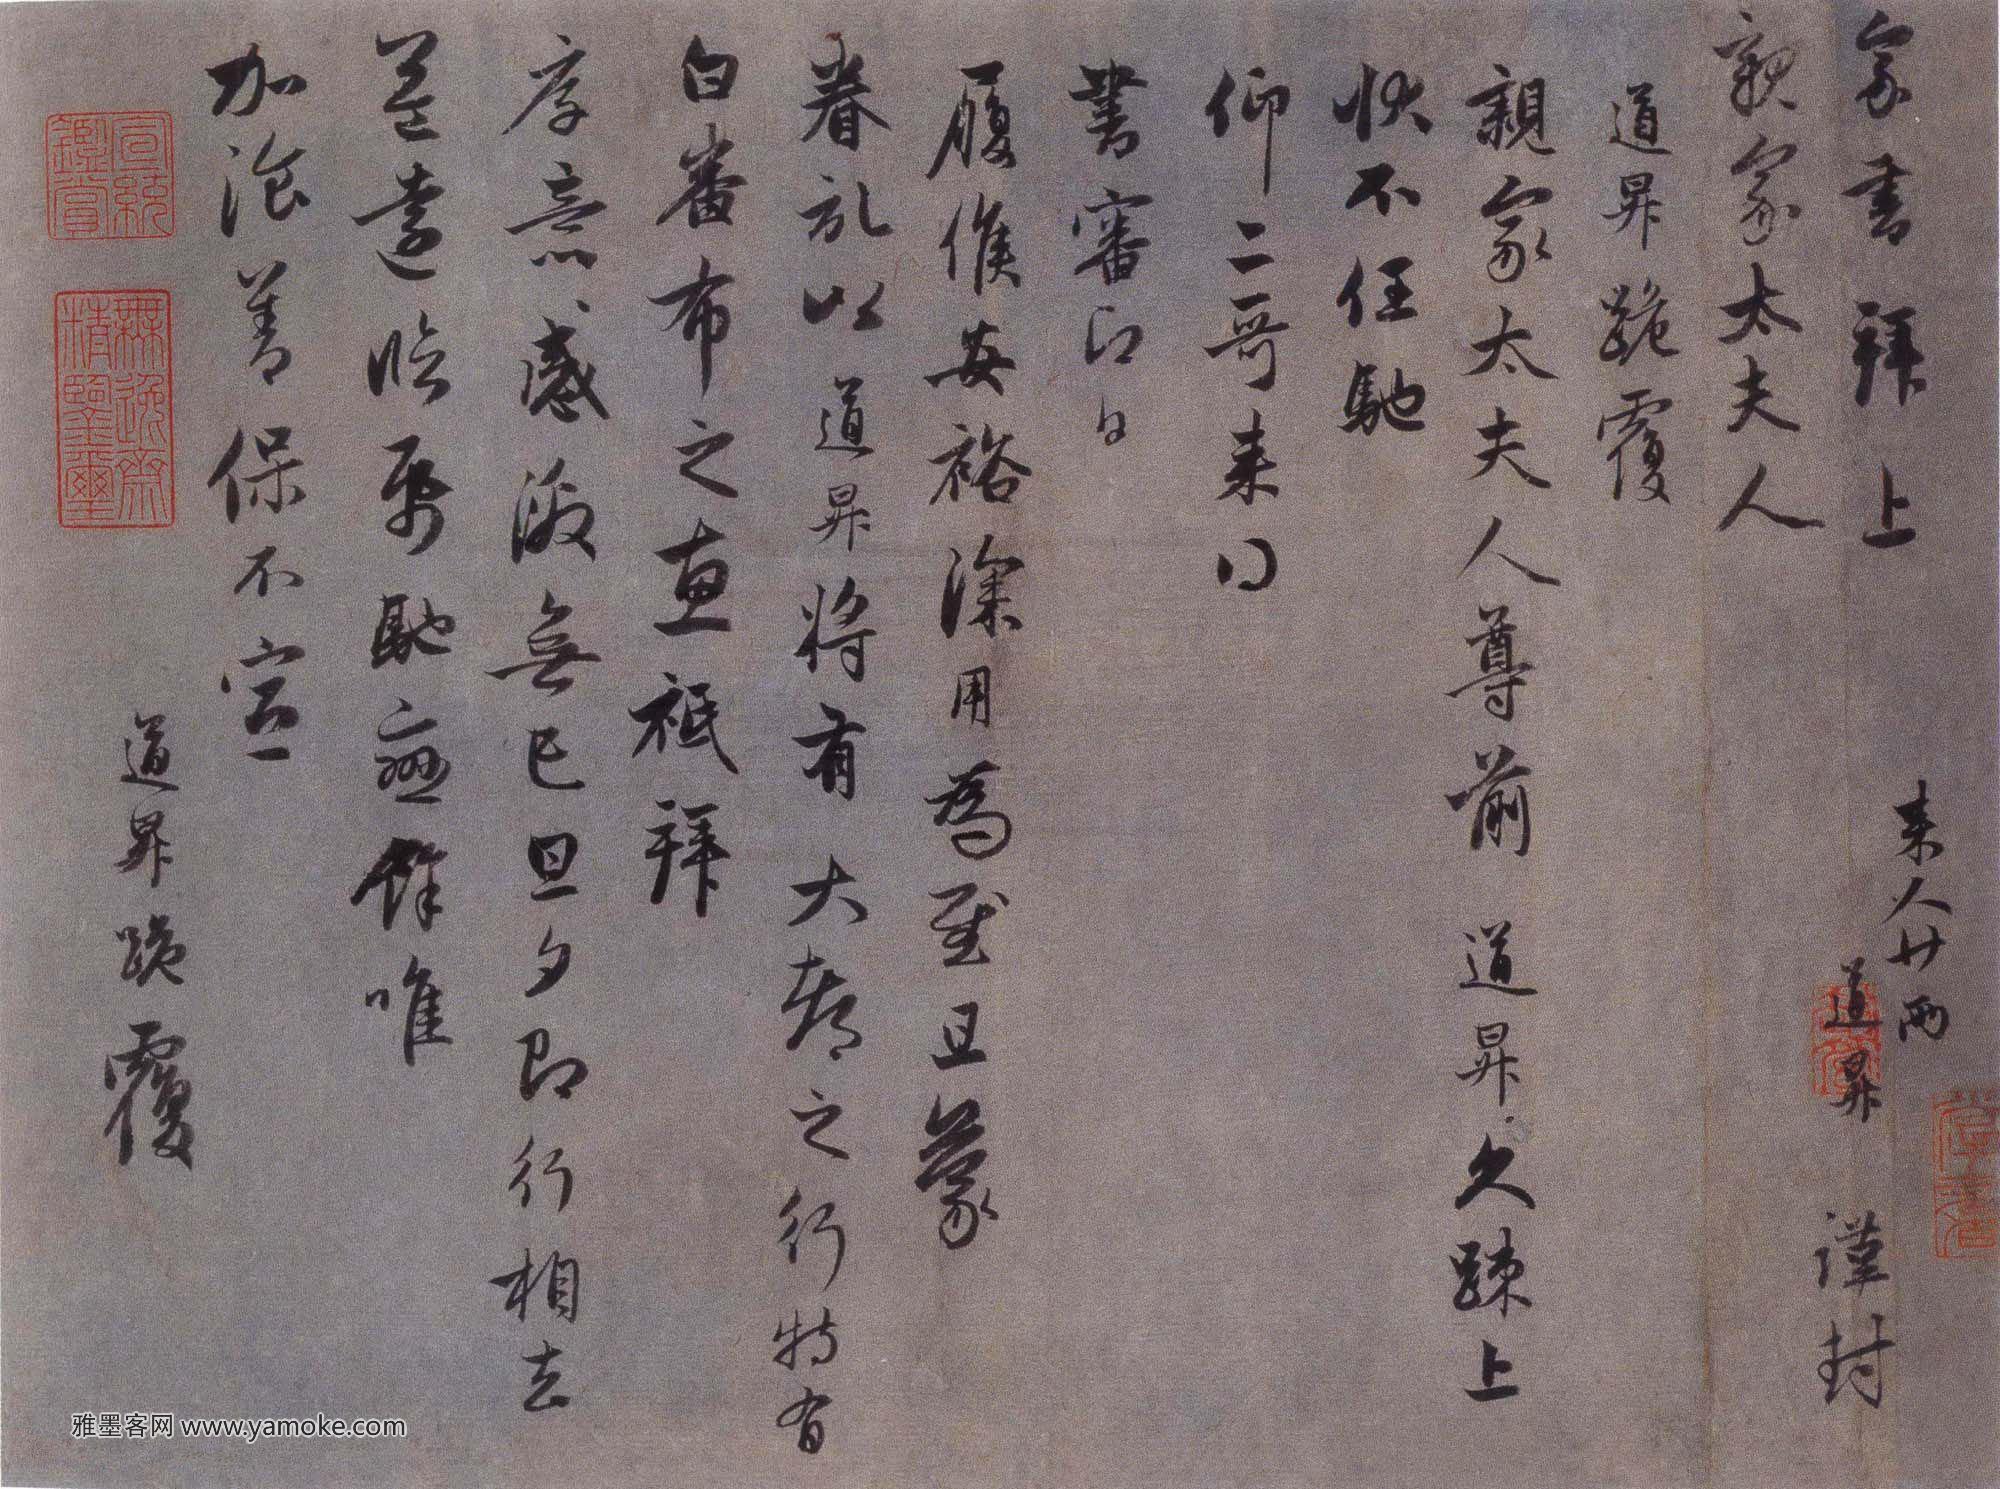 家書拜上
来人廿兩
道昇 謹封
親家太夫人
道昇跪覆
親家太夫人尊前 道昇久疎上
状不任馳
仰二哥来得
書審即日
履候安裕深用為慰且蒙
眷記以道昇将有大都之行特有
白番布之惠祗拜
厚意感激無已旦夕即行相去
益遠臨紙馳戀餘唯
加飡善保不宣
道昇跪覆
宣統鑑賞
無逸齋精鑒璽
雅墨客网 www.yamoke.com